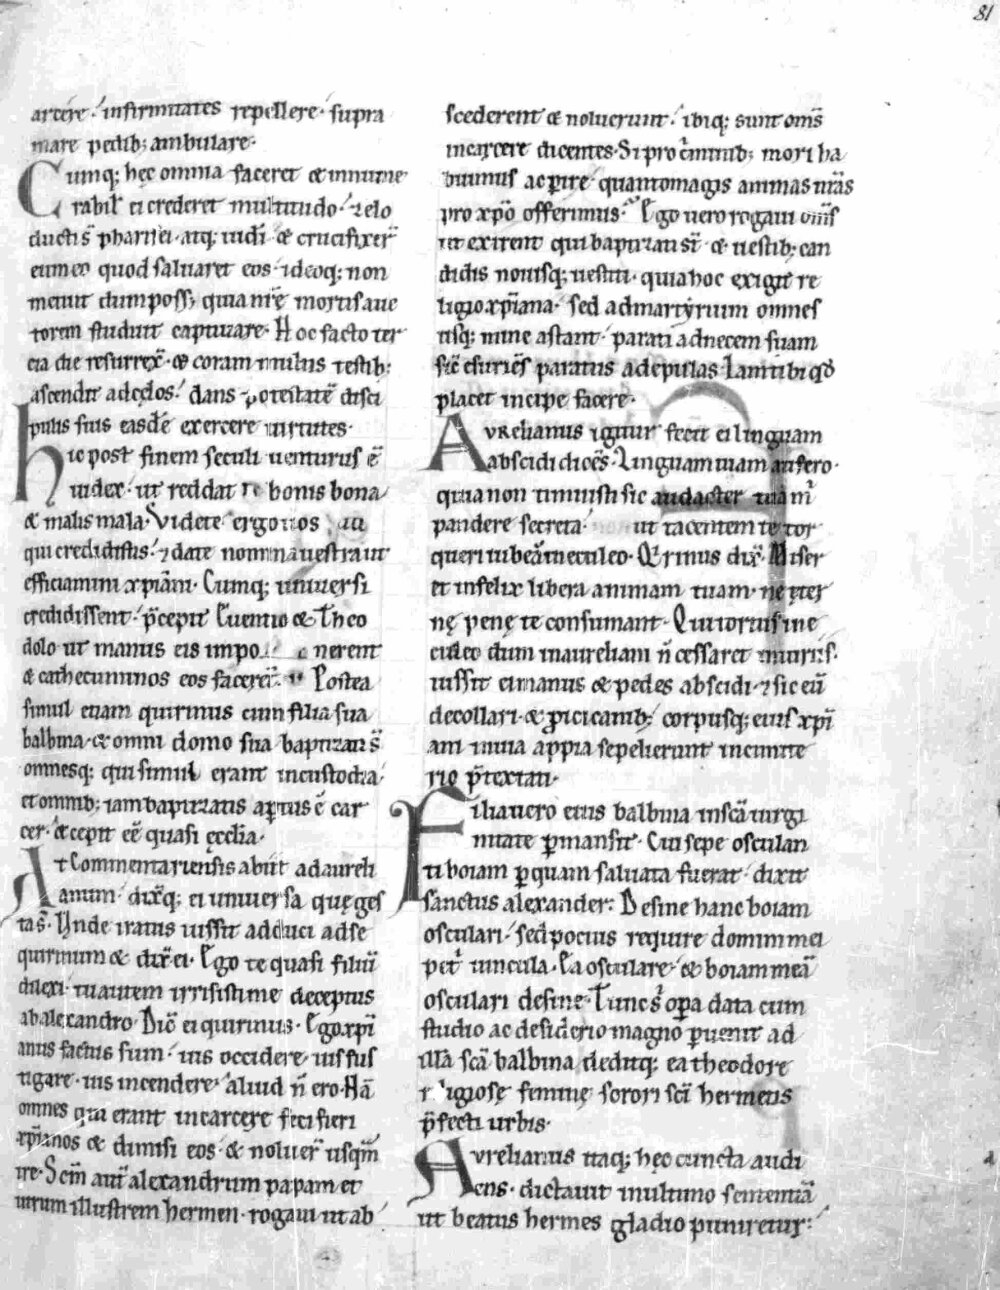 81
artere. infirmitates repellere. supra
mare pedib; ambulare.
Cumq; hęc omnia faceret & innume
rabil ei crederet multitudo. zelo
ducti s̄ pharisei. atq; iudi & crucifixer̄
eum eo quod saluaret eos. ideoq; non
metuit dum poss; quia nr̄ę mortis aue
torem studuit captiuare. Hoc facto ter
cia die resurrex̄. & coram multis testib;
ascendit ad cęlos. dans potestatē disci
pulis suis easdē exercere uirtutes.
hic post finem seculi uenturus ē
iudex. ut reddat bonis bona
& malis mala. Videte ergo uos
qui credidistis. ⁊ date nomina uestra ut
efficiamini xp̄iani. Cumq; uniuersi
credidissent. p̄cepit Euentio & Theo
dolo ut manus eis impo nerent
& cathecuminos eos facerent. Postea
simul etiam quirinus cum filia sua
balbina. & omni domo sua baptizati s̄
omnesq; qui simul erant in custodia.
et omnib; iam baptizatis aptus ē car
cer. & cepit eē quasi ęcclia.
At Commentariensis abiit ad aureli
anum. dix̄q; ei uniuersa quę ges
ta s̄. Unde iratus iussit adduci ad se
quirinum & dix̄ ei. Ego te quasi filiū
dilexi. tu autem irrisisti me deceptus
ab alexandro. Dic̄ ei quirinus. Ego xp̄i
anus factus sum. uis occidere. uis fus
tigare. uis incendere. aliud n̄ ero. Nā
omnes qui erant in carcere feci fieri
xp̄ianos & dimisi eos. & noluer̄ usq̄m
ire. Scm̄ aut̄ alexandrum papam et
uirum illustrem hermen. rogaui ut ab
scederent & noluerunt. ibiq; sunt oms̄
in carcere dicentes. Si pro criminib; mori ha
buimus ac pire. quanto magis animas nr̄as
pro xp̄o offerimus. Ego uero rogaui oms̄
ut exirent qui baptizati st̄ & uestib; can
didis nouisq; uestiti. quia hoc exigit re
ligio xp̄iana. sed ad martyrium omnes
usq; nunc astant. parati ad necem suam
sic̄ esuriēs paratus ad epulas. Iam tibi qd̄
placet incipe facere.
Aurelianus igitur fecit ei linguam
abscidi dicēs. Linguam tuam aufero.
quia non timuisti sic audacter tua m̄
pandere secreta. ut tacentem te tor
queri iubeā in eculeo. Qrinus dix̄. Miser
et infelix libera animam tuam. ne ęter
nę penę te consumant. Qui tortus in e
culeo dum in aurelianū n̄ cessaret
iussit ei manus & pedes abscidi. ⁊ sic eū
decollari. & p̄ici canib; corpusq; eius xp̄i
ani in uia appia sepelierunt in cimite
rio p̄textati.
Filia uero eius balbina in scā uirgi
nitate p̄mansit. Cui sepe osculan
ti boiam p̄ quam saluata fuerat. dixit
sanctus alexander. Desine hanc boiam
osculari. sed pocius require domini mei
petri uincula. Ea osculare. & boiam meā
osculari desine. Tunc s̄ opa data cum
studio ac desiderio magno puenit ad
illā scā balbina. deditq; ea theodore
religiosę feminę sorori sc̄i hermetis
p̄fecti urbis.
Aurelianus itaq; hęc cuncta audi
ens. dictauit in ultimo sententiā
ut beatus hermes gladio puniretur.